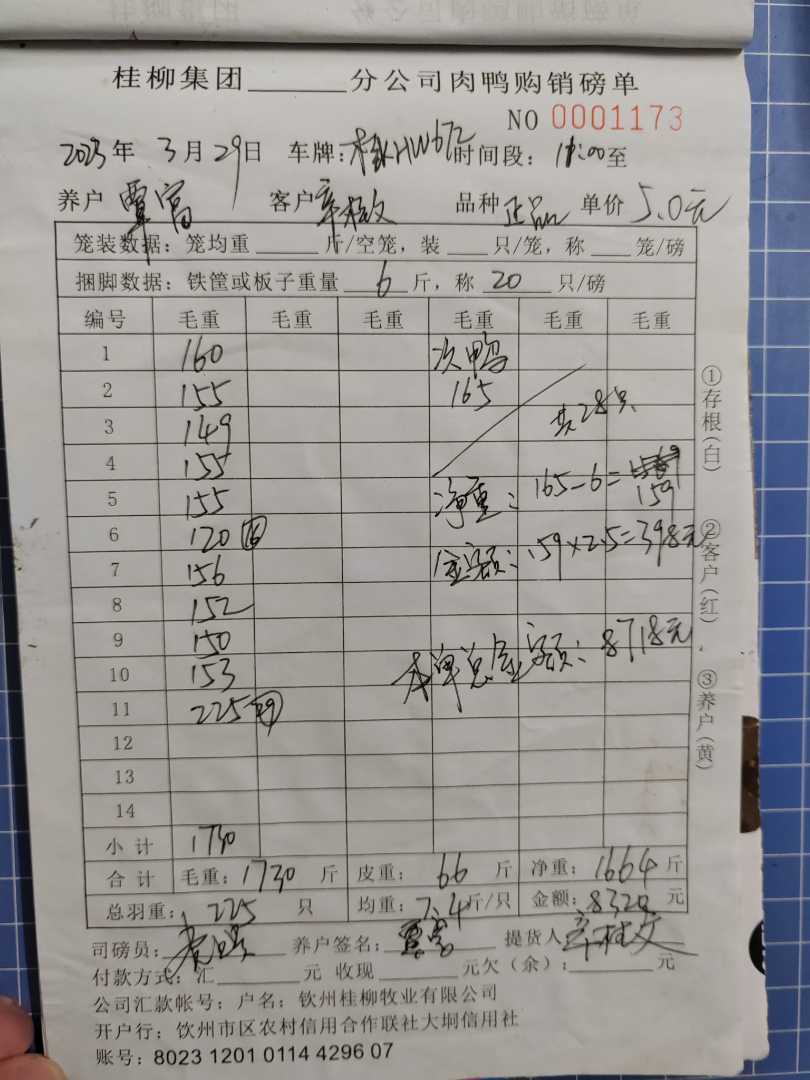 桂柳集团______分公司肉鸭购销磅单
NO 0001173
2023年 3月29日 车牌:桂HW672 时间段: 11:00至
养户 覃富 客户 品种 正品 单价 5.0元
笼装数据: 笼均重 _____ 斤/空笼, 装 ___ 只/笼, 称 ___ 笼/磅
捆脚数据: 铁筐或板子重量 6 斤, 称 20 只/磅
编号 毛重 毛重 毛重 毛重 毛重 毛重
1 160 次鸭
2 155 165
3 149 共28只
4 155
5 155 净重: 165-6=159
6 120 ⑯
7 156 金额: 159×2.5=398元
8 152
9 150
10 153 本单总金额: 8718元
11 225
12
13
14
小计 1730
合计 毛重: 1730 斤 皮重: 66 斤 净重: 1664 斤
总羽重: 225 只 均重: 7.4斤/只 金额: 8320 元
司磅员: 养户签名: 覃富 提货人
付款方式: 汇______元 收现______元欠(余):______元
公司汇款帐号: 户名; 钦州桂柳牧业有限公司
开户行: 钦州市区农村信用合作联社大垌信用社
账号: 8023 1201 0114 4296 07
①存根(白)
②客户(红)
③养户(黄)